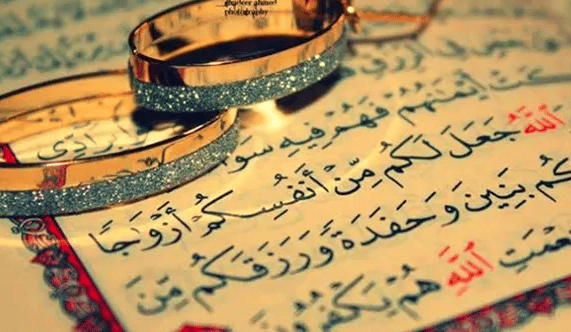 ghadeer ahmed
photography
بِرَآدِّى
كَتْ أَيْمَٰنُهُمْ فَهُمْ فِيهِ سَوَآ
ٱللَّهُ جَعَلَ لَكُم مِّنْ أَنفُسِكُمْ أَزْوَٰجًا
كُم بَنِينَ وَحَفَدَةً وَرَزَقَكُم مِّنَ
عْمَتِ ٱللَّهِ هُمْ يَكْفُرُونَ